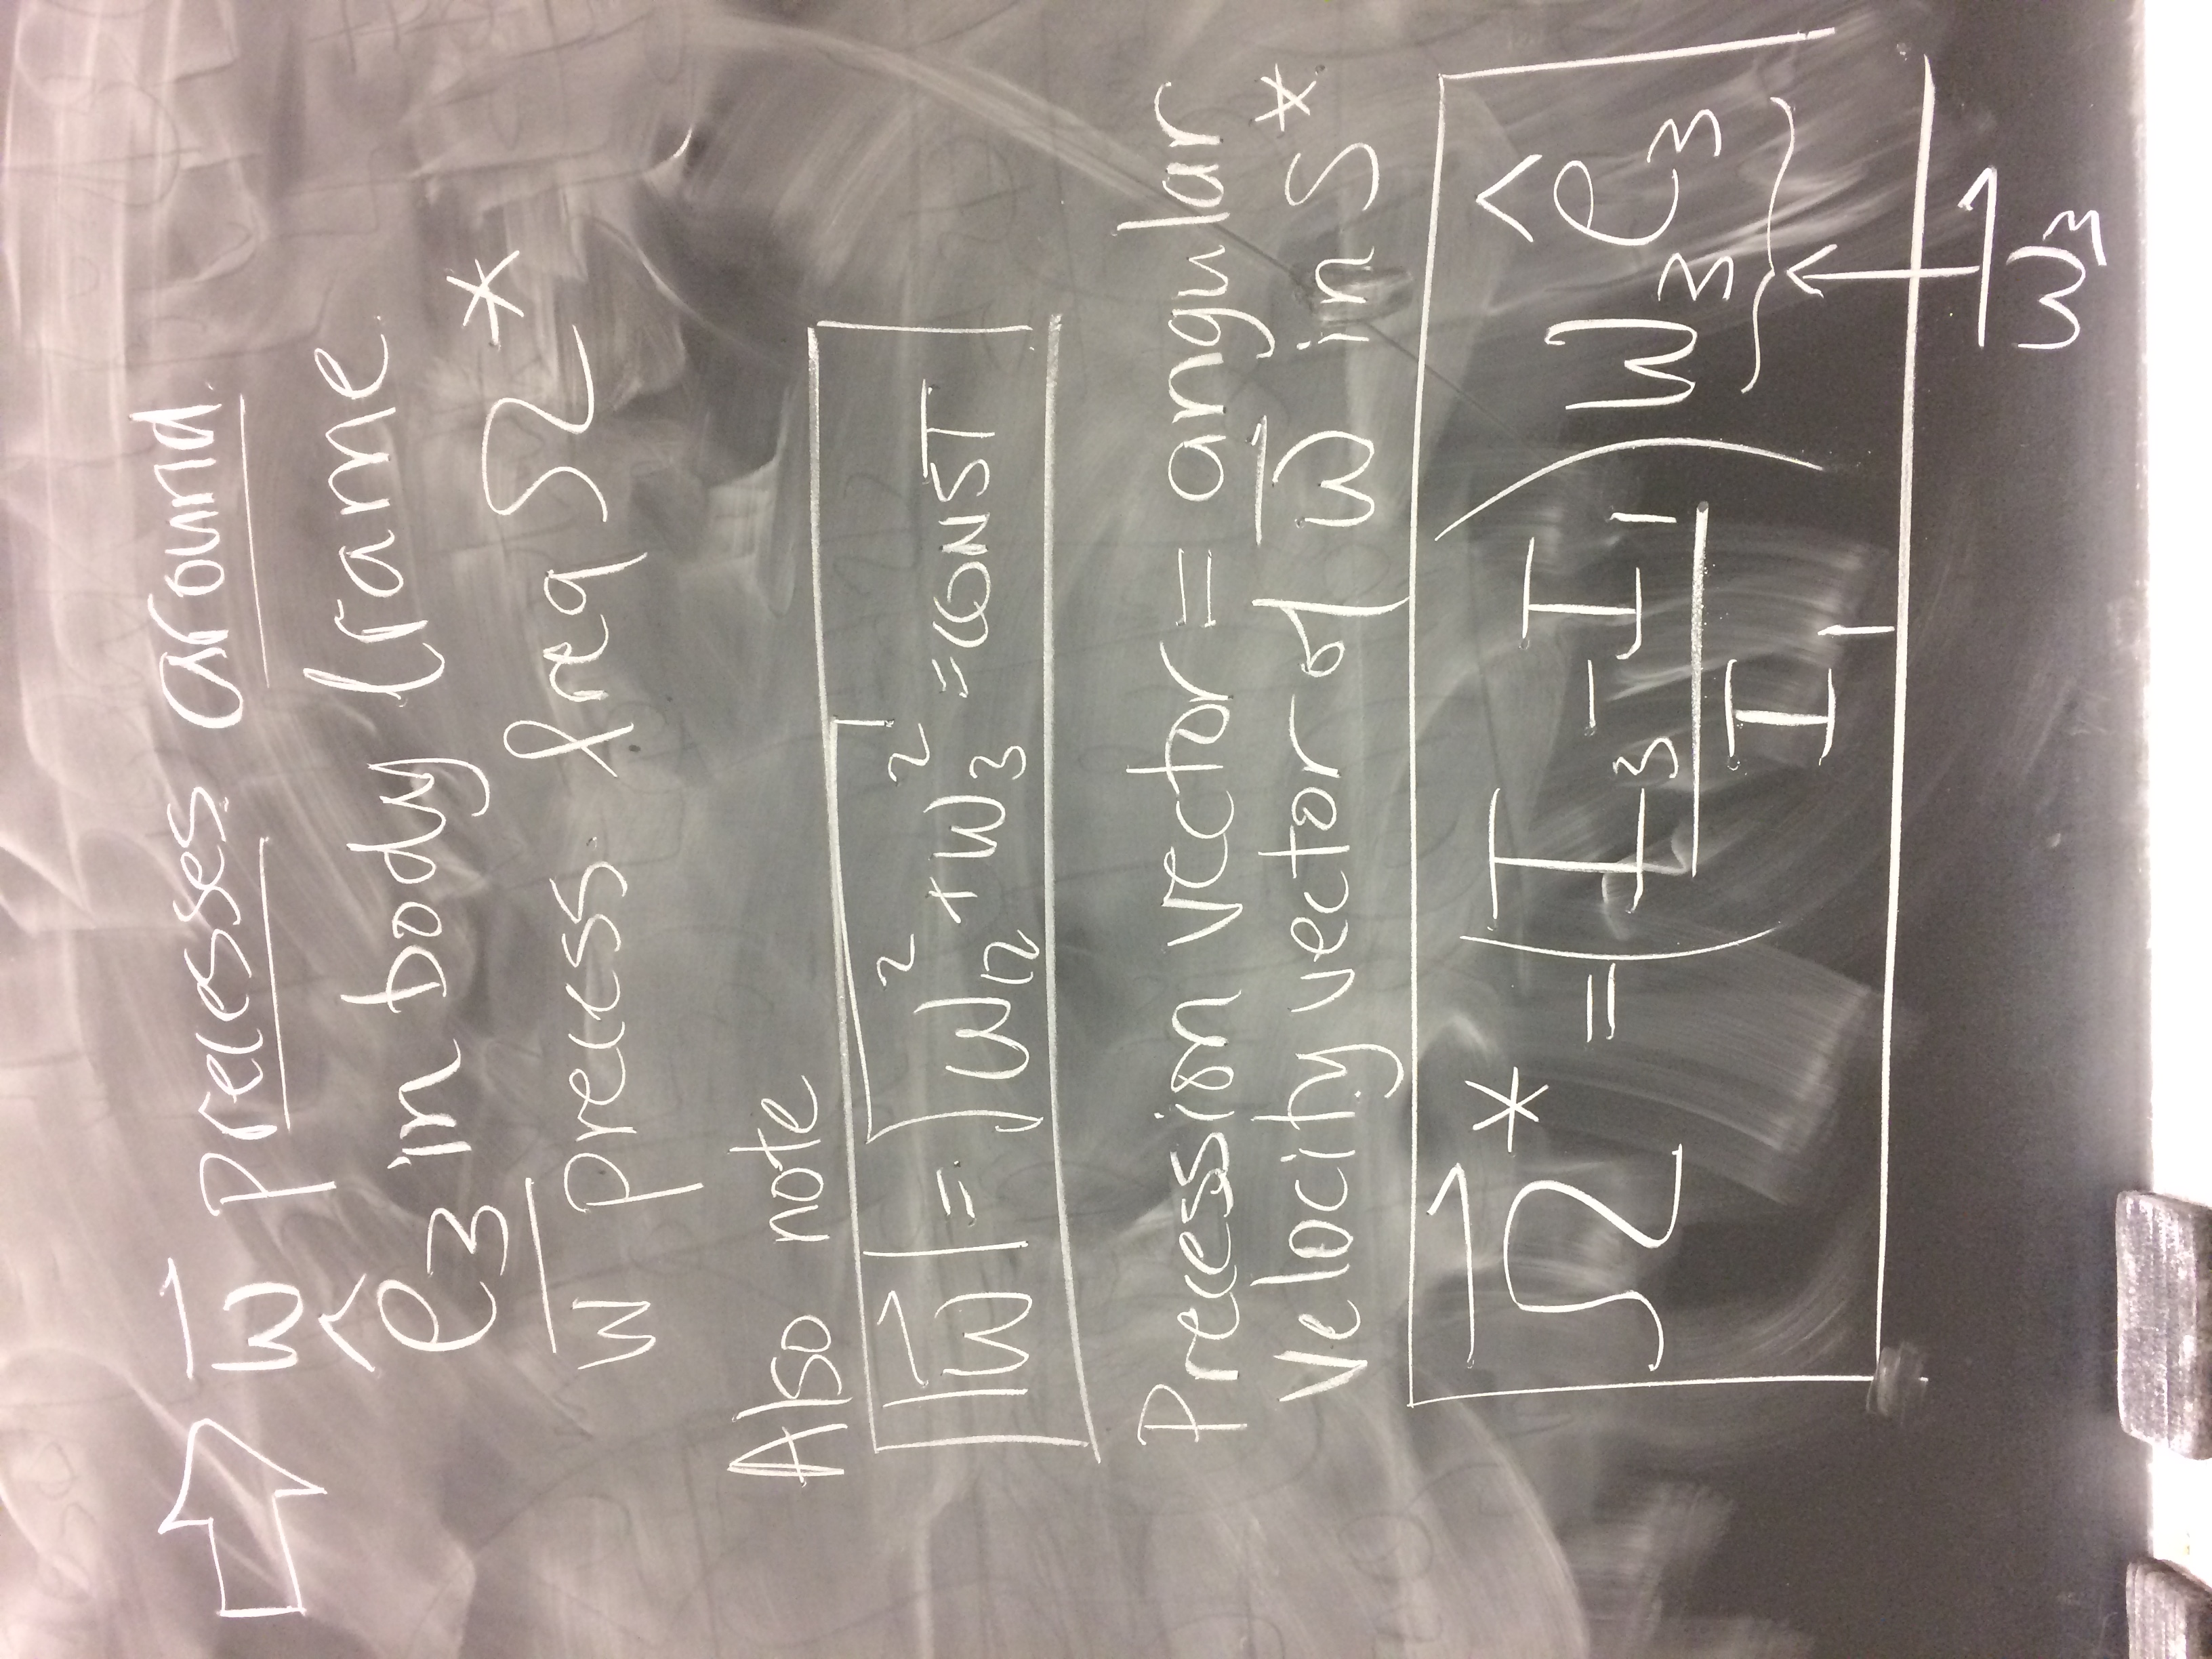 ⇒ ω⃗ precesses around
ê₃ in body frame
ω⃗ precess. freq Ω*
Also note
|ω⃗| = √(ω₁₂² + ω₃²) = CONST
Precession vector = angular
velocity vector of ω⃗ in S*
Ω⃗* = ((I₃ - I₁)/I₁) ω₃ ê₃
ω⃗₃